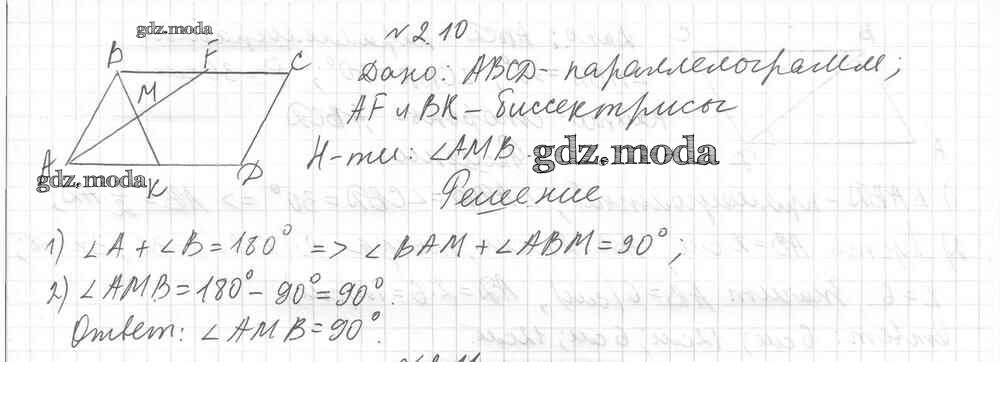 gdz.moda
№2.10
B F C
Дано: ABCD - параллелограмм;
M
AF и BK - биссектрисы
Н-ти: ∠AMB.
gdz.moda
A K D
gdz.moda
Решение
1) ∠A + ∠B = 180° => ∠BAM + ∠ABM = 90°;
2) ∠AMB = 180° - 90° = 90°.
Ответ: ∠AMB = 90°.